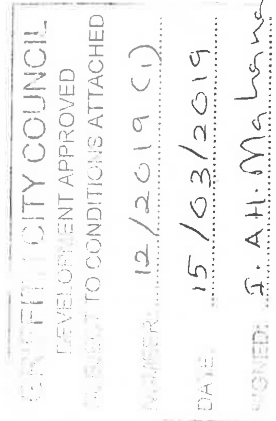 GRIFFITH CITY COUNCIL
DEVELOPMENT APPROVED
SUBJECT TO CONDITIONS ATTACHED
NUMBER: 12/2019 (1)
DATE: 15/03/2019
SIGNED: